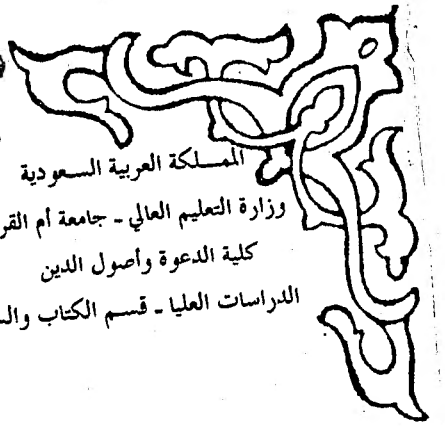 المملكة العربية السعودية
وزارة التعليم العالي - جامعة أم القر
كلية الدعوة وأصول الدين
الدراسات العليا - قسم الكتاب والس